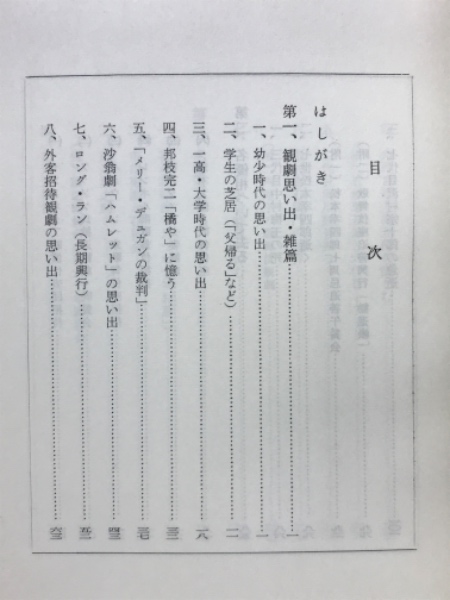 目次
はしがき
第一、観劇思い出・雑篇……一
一、幼少時代の思い出……一
二、学生の芝居（「父帰る」など）……一一
三、一高・大学時代の思い出……一八
四、邦枝完二「橋や」に憶う……三二
五、「メリー・デュガンの裁判」……三七
六、沙翁劇「ハムレット」の思い出……四三
七、ロング・ラン（長期興行）……五三
八、外客招待観劇の思い出……六三